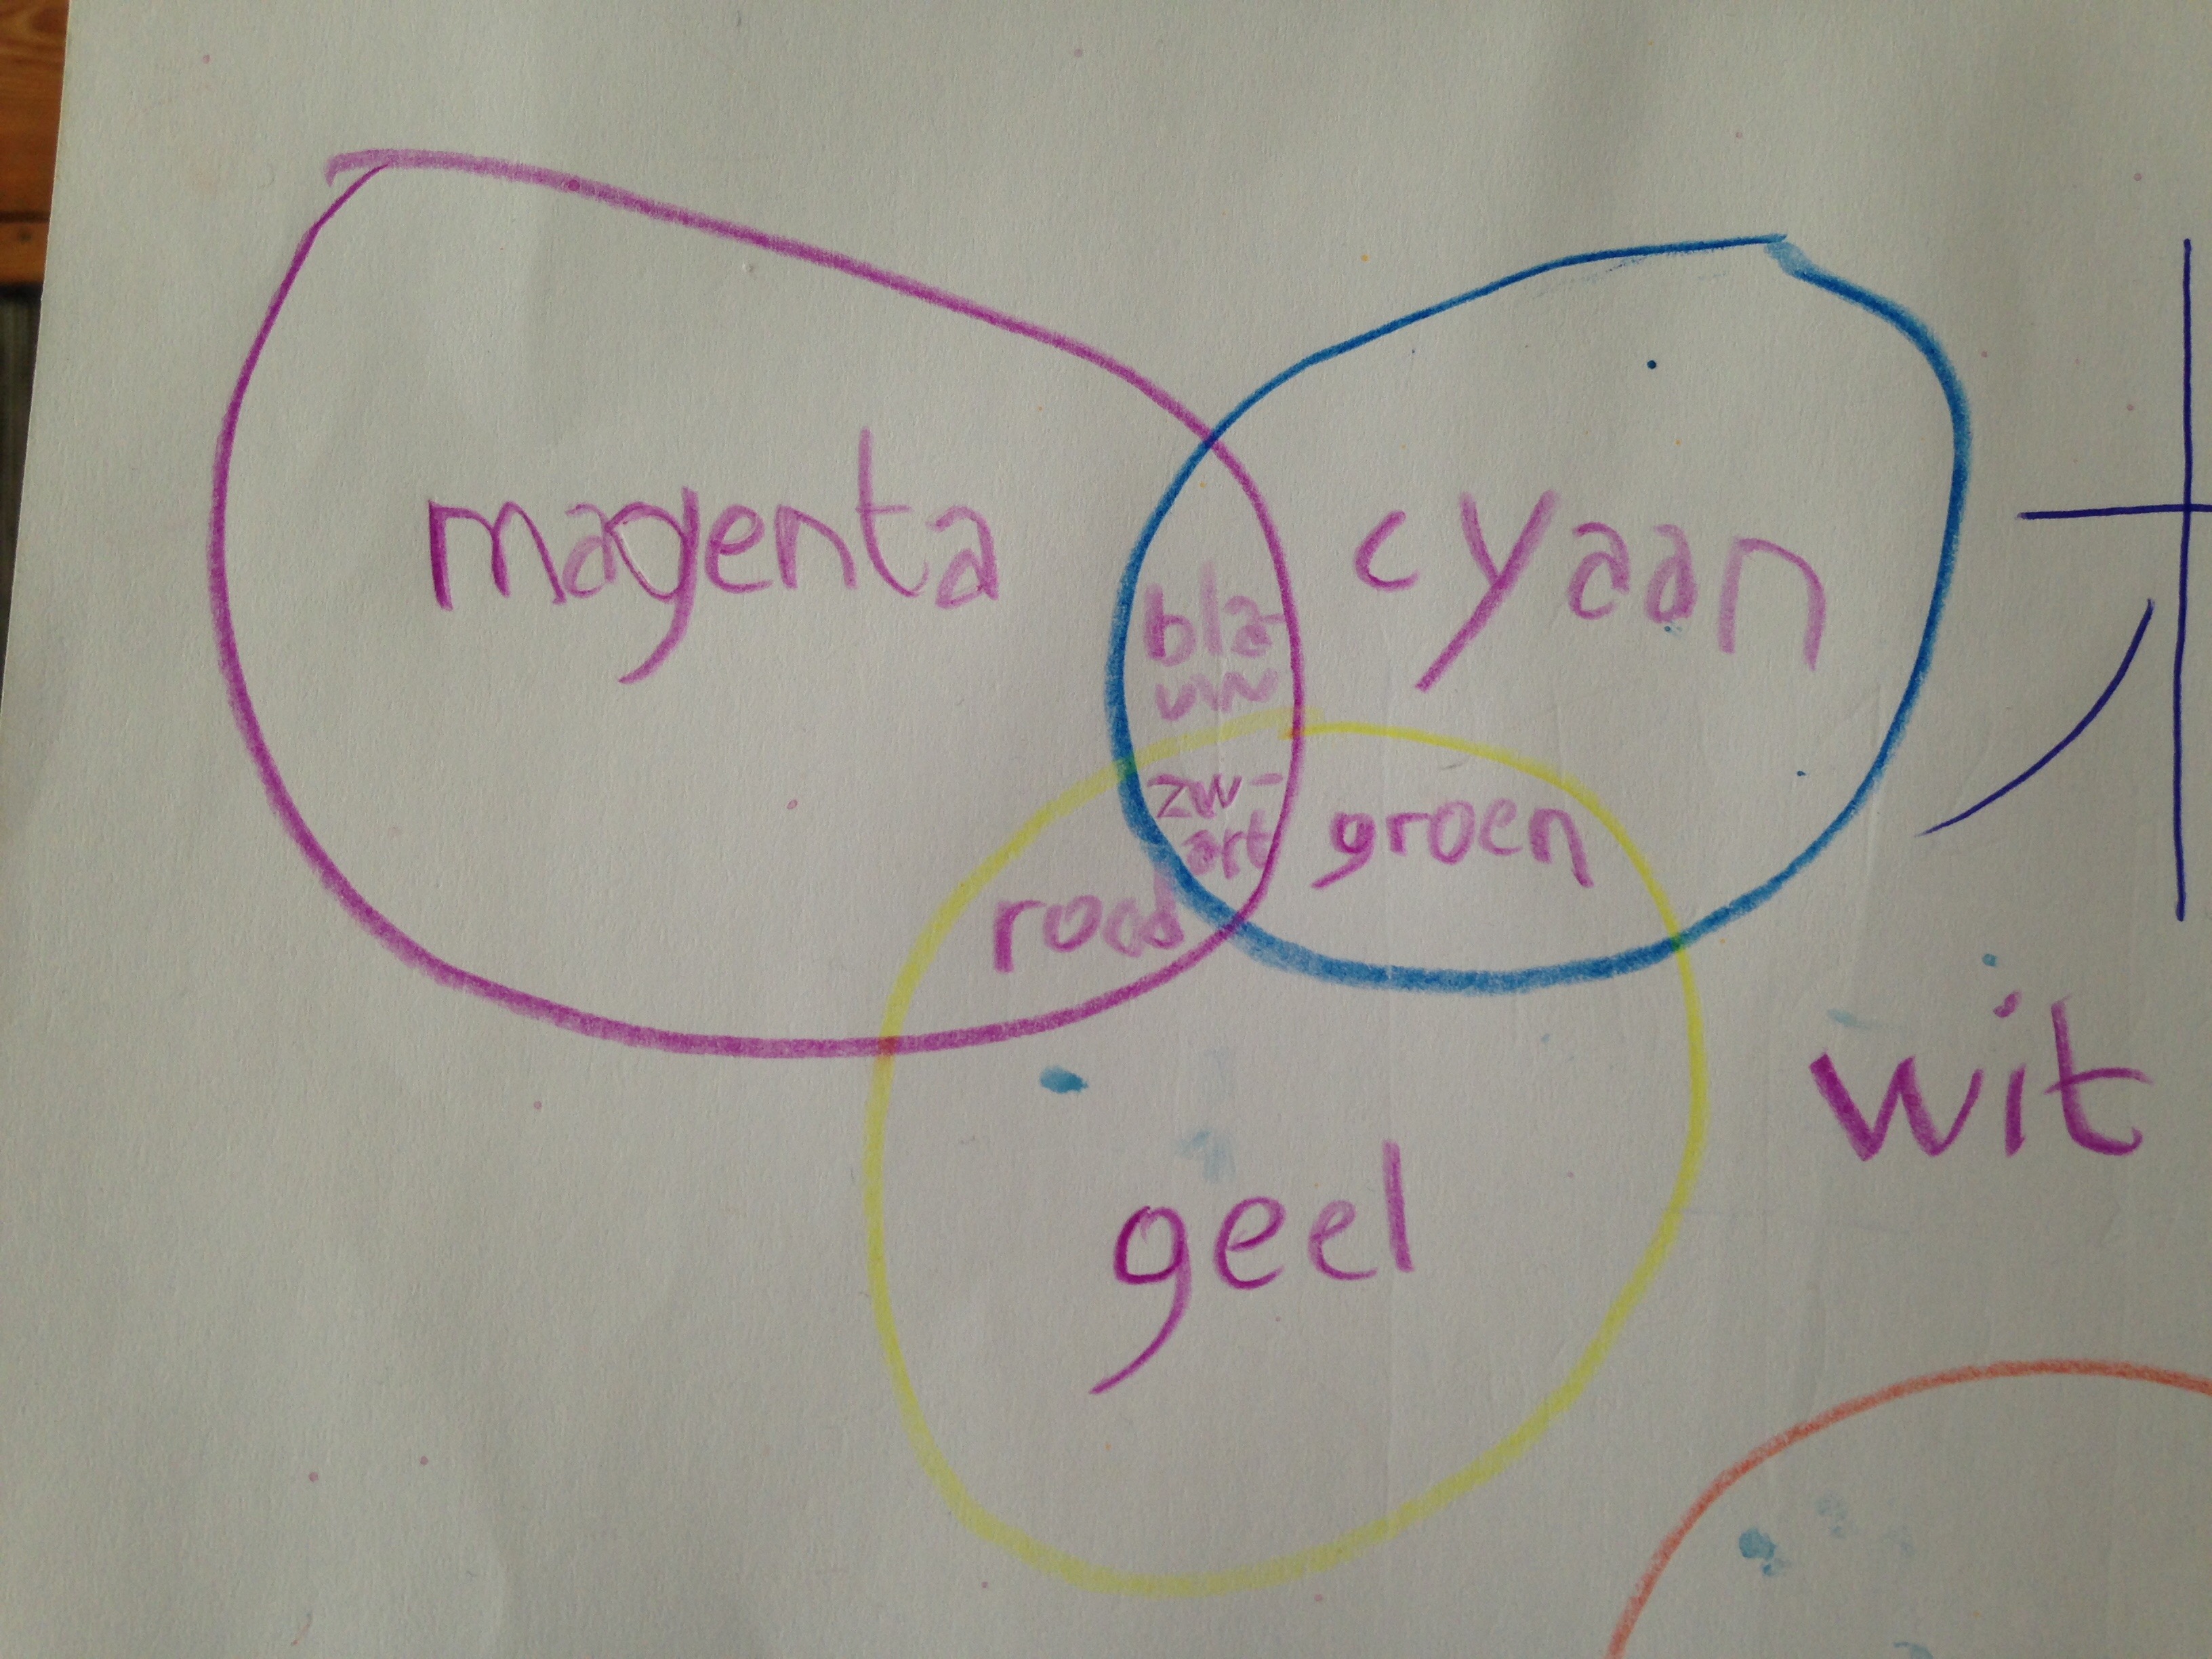 magenta
cyaan
bla-
uw
zw-
art
groen
rood
wit
geel